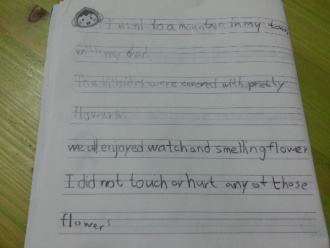 I went to a mountain in my town
with my dad.
The hillsides were covered with pretty
flowers.
we all enjoyed watch and smelling flower
I did not touch or hurt any of those
flowers